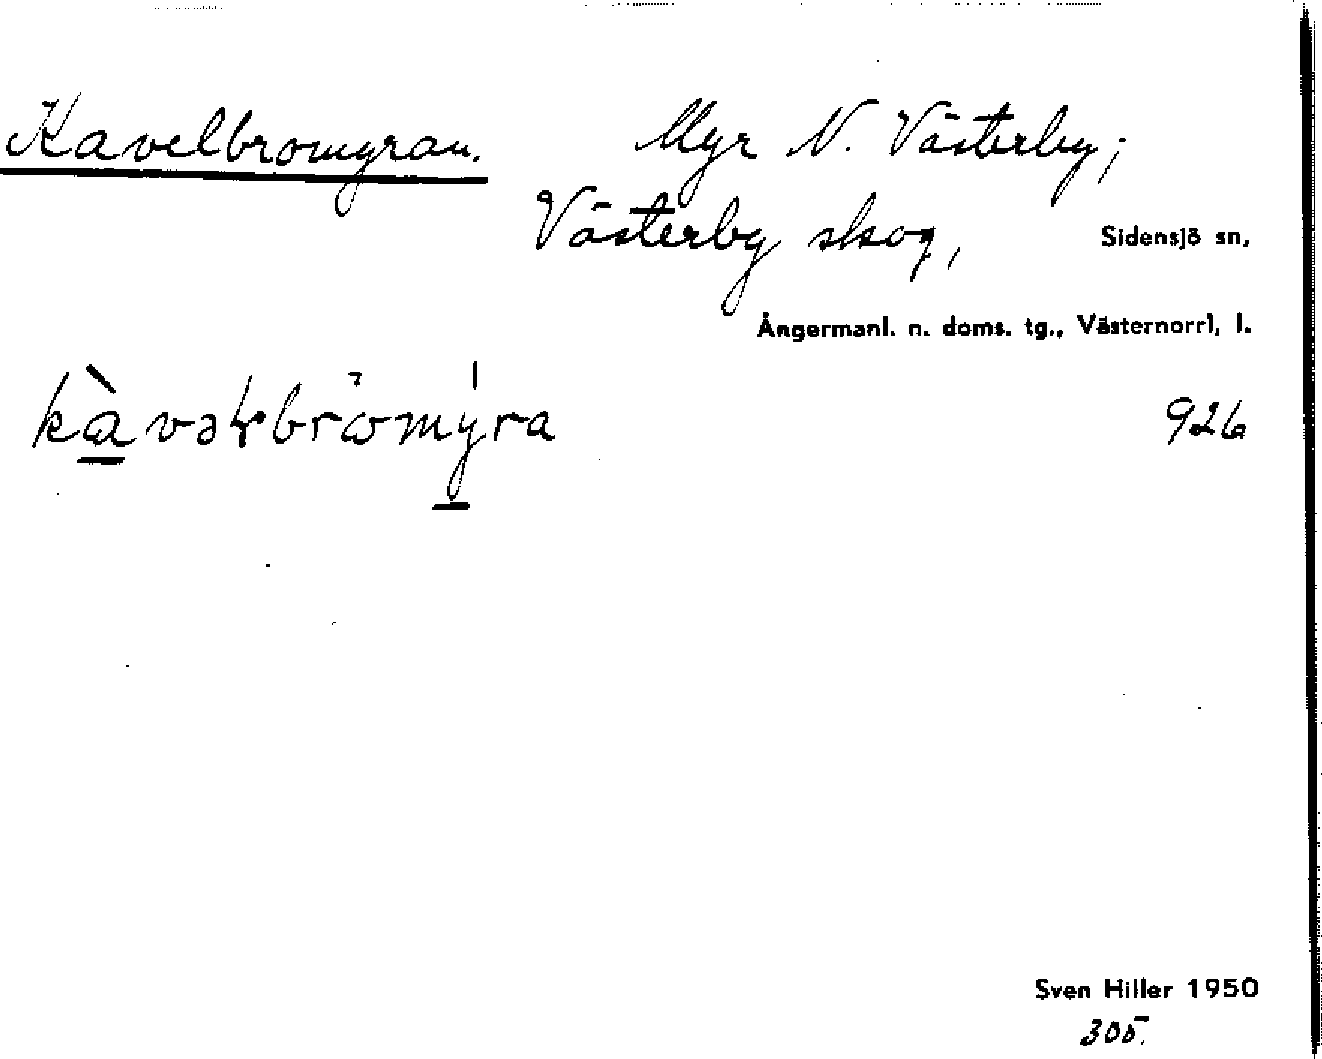 Kavelbromyran. Myr N. Västerby;
Västerby skog, Sidensjö sn,
Ångermanl. n. doms. tg., Västernorrl, l.
926
Sven Hiller 1950
305.